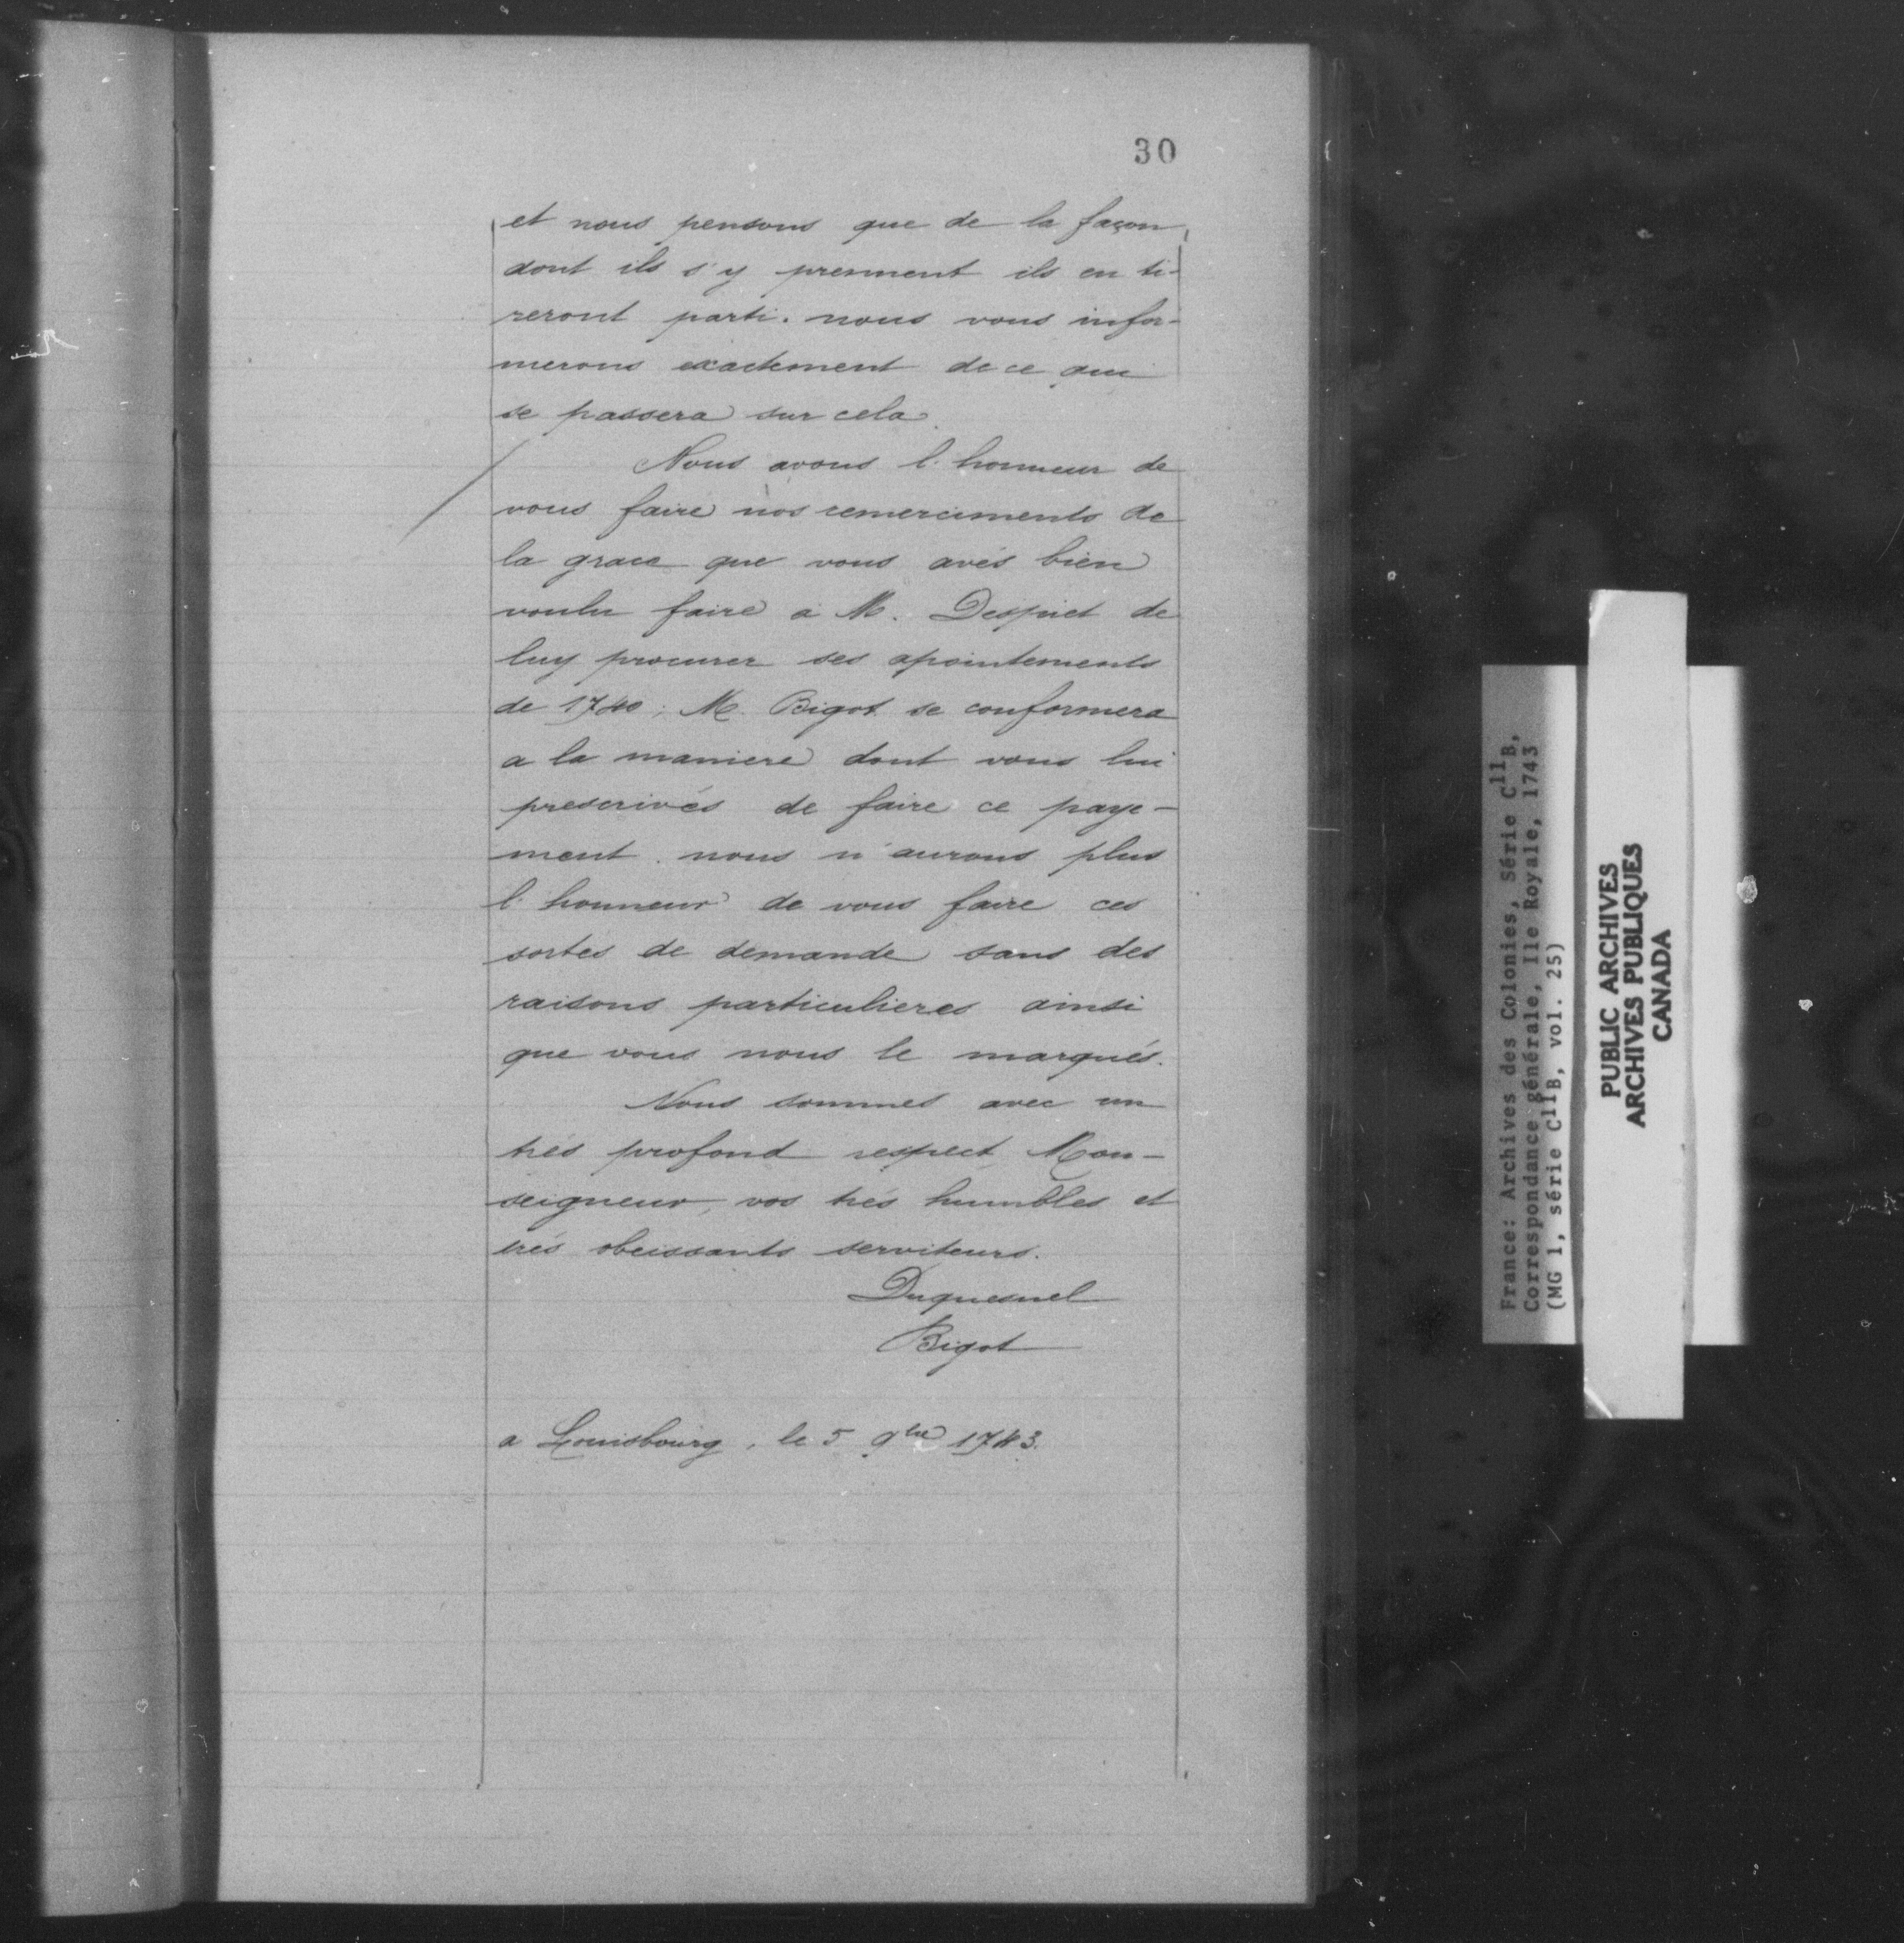 30
et nous pensons que de la façon
dont ils s'y prennent ils en ti-
reront parti. nous vous infor-
merons exactement de ce qui
se passera sur cela.
Nous avons l'honneur de
vous faire nos remerciments de
la grace que vous avés bien
voulu faire a M. Despiet de
luy procurer ses apointements
de 1740; M. Bigot se conformera
a la maniere dont vous lui
prescrivés de faire ce paye-
ment. nous n'aurons plus
l'honneur de vous faire ces
sortes de demande sans des
raisons particulieres ainsi
que vous nous le marqués.
Nous sommes avec un
trés profond respect, Mon-
seigneur, vos trés humbles et
trés obeissants serviteurs.
Duquesnel
Bigot
a Louisbourg, le 5 9bre 1743.
France: Archives des Colonies, Série C11B,
Correspondance générale, Ile Royale, 1743
(MG 1, série C11B, vol. 25)
PUBLIC ARCHIVES
ARCHIVES PUBLIQUES
CANADA